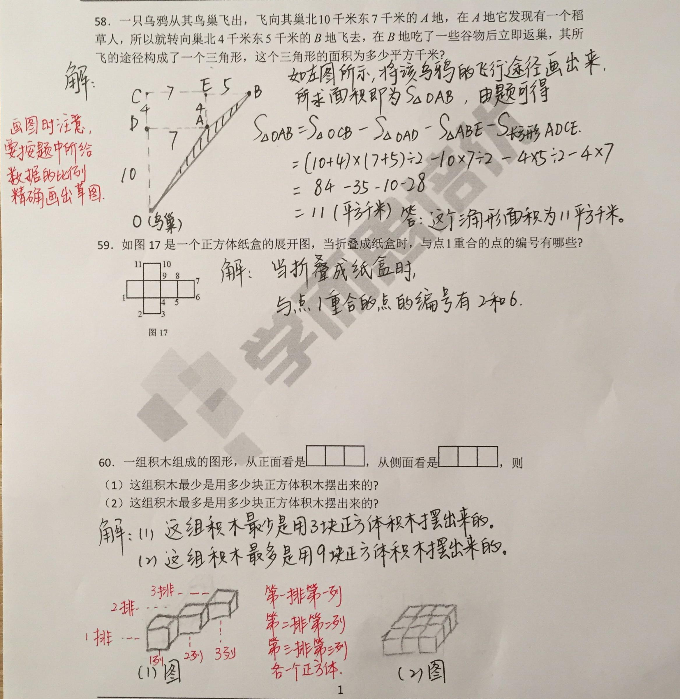 58. 一只乌鸦从其鸟巢飞出，飞向其巢北10千米东7千米的A地，在A地它发现有一个稻
草人，所以就转向巢北4千米东5千米的B地飞去，在B地吃了一些谷物后立即返巢，其所
飞的途径构成了一个三角形，这个三角形的面积为多少平方千米？
解：
C 7 E 5 B
4 4
D 7 A
10
O（鸟巢）
画图时注意，
要按题中所给
数据的比例
精确画出草图.
如左图所示，将该乌鸦的飞行途径画出来，
所求面积即为S△OAB，由题可得
S△OAB=S△OCB－S△OAD－S△ABE－S长方形ADCE.
=(10+4)×(7+5)÷2－10×7÷2－4×5÷2－4×7
= 84－35－10－28
= 11（平方千米）答：这个三角形面积为11平方千米。
59. 如图17是一个正方体纸盒的展开图，当折叠成纸盒时，与点1重合的点的编号有哪些？
11 10
9 8 7
1 4 5 6
2 3
图17
解：当折叠成纸盒时，
与点1重合的点的编号有2和6.
学而思培优
60. 一组积木组成的图形，从正面看是，从侧面看是，则
（1）这组积木最少是用多少块正方体积木摆出来的？
（2）这组积木最多是用多少块正方体积木摆出来的？
解：(1) 这组积木最少是用3块正方体积木摆出来的。
(2) 这组积木最多是用9块正方体积木摆出来的。
3排
2排
1排
1列 2列 3列
(1)图
第一排第一列
第二排第二列
第三排第三列
各一个正方体.
(2)图
1